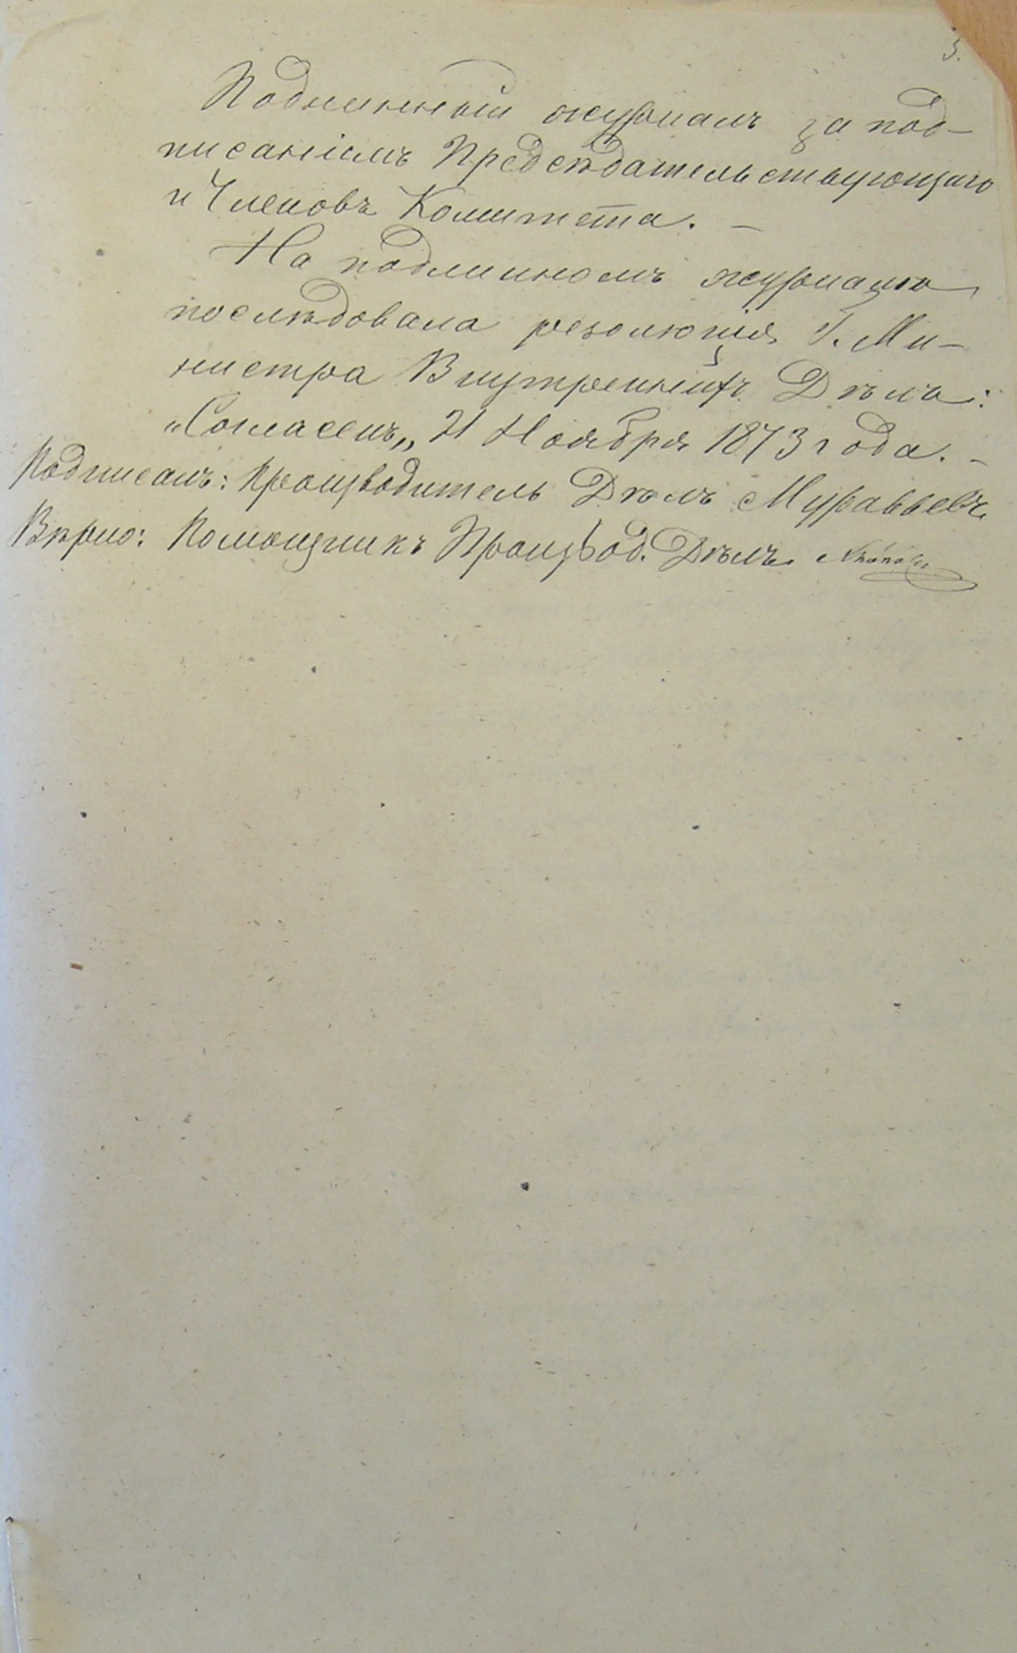 3.
Подлинный журналъ за под-
писаніемъ Предсѣдательствующаго
и Членовъ Комитета. –
На подлинномъ журналѣ
послѣдовала резолюція Г. Ми-
нистра Внутреннихъ Дѣлъ:
„Согласенъ„ 21 Ноября 1873 года. –
Подписалъ: Производитель Дѣлъ Муравьевъ
Вѣрно: Помощникъ Производ. Дѣлъ.